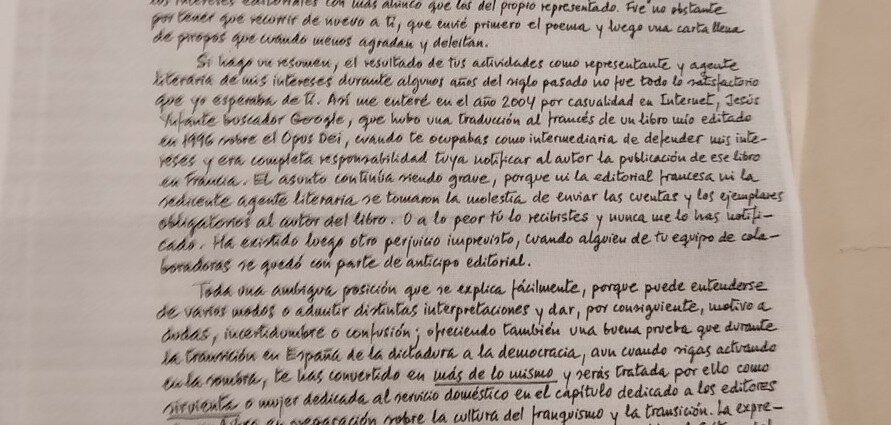 los intereses editoriales con más ahínco que los del propio representado. Fue no obstante
por tener que recorrir de nuevo a ti, que envié primero el poema y luego una carta llena
de piropos que cuando menos agradan y deleitan.
Si hago un resumen, el resultado de tus actividades como representante y agente
literaria de mis intereses durante algunos años del siglo pasado no fue todo lo satisfactorio
que yo esperaba de ti. Así me enteré en el año 2004 por casualidad en Internet, Jesús
Ynfante buscador Google, que hubo una traducción al francés de un libro mío editado
en 1996 sobre el Opus Dei, cuando te ocupabas como intermediaria de defender mis inte-
reses y era completa responsabilidad tuya notificar al autor la publicación de ese libro
en Francia. El asunto continúa siendo grave, porque ni la editorial francesa ni la
sedicente agente literaria se tomaron la molestia de enviar las cuentas y los ejemplares
obligatorios al autor del libro. O a lo peor tú lo recibistes y nunca me lo has notifi-
cado. Ha existido luego otro perjuicio imprevisto, cuando alguien de tu equipo de cola-
boradoras se quedó con parte de anticipo editorial.
Toda una ambigua posición que se explica fácilmente, porque puede entenderse
de varios modos o admitir distintas interpretaciones y dar, por consiguiente, motivo a
dudas, incertidumbre o confusión; ofreciendo también una buena prueba que durante
la transición en España de la dictadura a la democracia, aun cuando sigas actuando
en la sombra, te has convertido en más de lo mismo y serás tratada por ello como
sirvienta o mujer dedicada al servicio doméstico en el capítulo dedicado a los editores
en preparación sobre la cultura del franquismo y la transición. La expre-